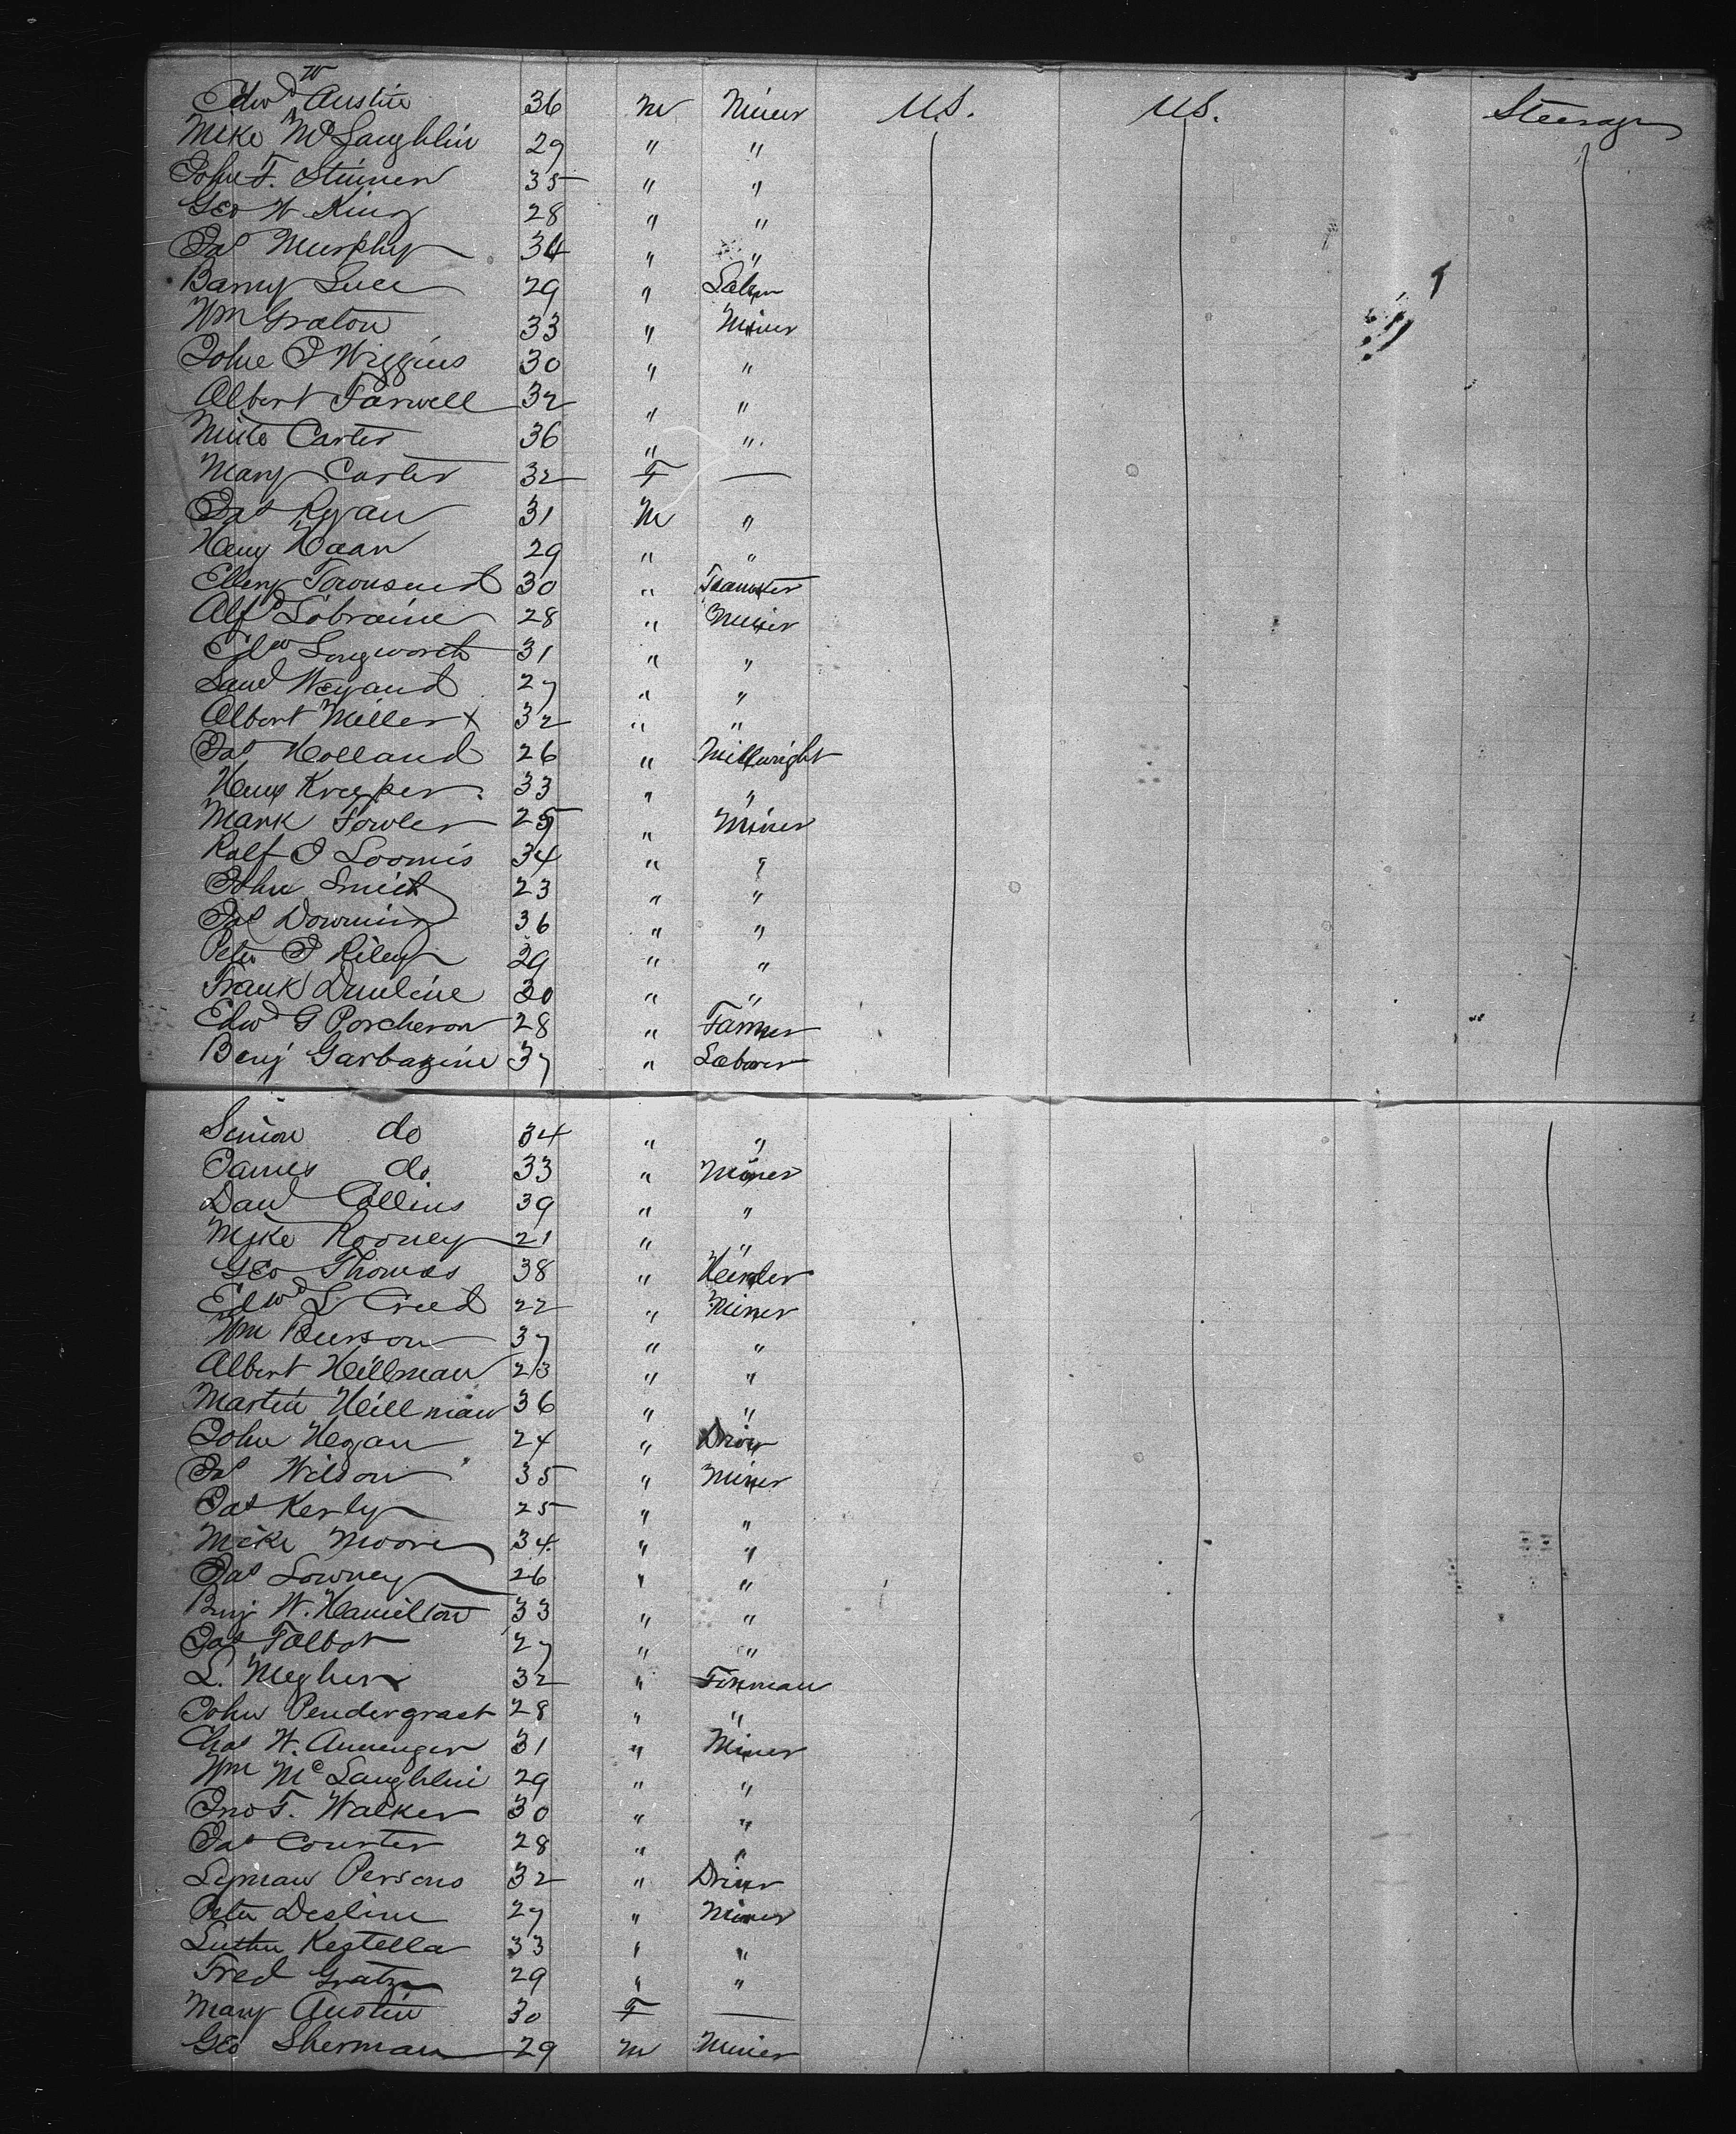 Edwd W Austin 36 M Miner U.S. U.S. Steerage
Mike McLaughlin 29 " "
John F. Stinner 35 " "
Geo W King 28 " "
Jas Murphy 34 " "
Barny Luce 29 " Labr
Wm Graton 33 " Miner
John J Wiggins 30 " "
Albert Farwell 32 " "
Carter 36 " "
Mary Carter 32 F —
Jas Ryan 31 M "
Henry Haan 29 " "
Ellery Townsend 30 " Teamster
Alfd Lobraine 28 " Miner
Edw Longworth 31 " "
Saml Weyand 27 " "
Albert Miller x 32 " "
Jas Holland 26 " Millwright
Henry Kreyper 33 " "
Mark Fowler 25 " Miner
Ralf J Loomis 34 " "
John Smith 23 " "
Jas Downing 36 " "
Peter J Riley 29 " "
Frank Dunline 30 " "
Edwd G Porcheron 28 " Farmer
Benj Garbazine 37 " Laborer
Simon do 34 " "
James do 33 " Miner
Danl Collins 39 " "
Mike Rooney 21 " "
Geo Thomas 38 " Herder
Edwd L Creed 22 " Miner
Wm Burson 37 " "
Albert Hillman 23 " "
Martin Hillman 36 " "
John Hegan 24 "
Jas Wilson 35 " Miner
Pat Kerly 25 " "
Mike Moore 34 " "
Jas Lowney 26 " "
Benj W. Hamilton 33 " "
Jas Talbot 27 " "
L. Megher 32 " Fireman
John Pendergrast 28 " "
Chas W. Annenger 31 " Miner
Wm McLaughlin 29 " "
Jno F. Walker 30 " "
Jas Courter 28 " "
Lyman Persons 32 " Driver
Peter Desline 27 " Miner
Luther Kestella 33 " "
Fred Gratz 29 " "
Mary Austin 30 F —
Geo Sherman 29 M Miner